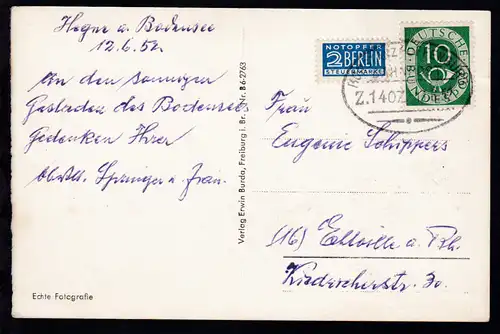 Hegne a. Bodensee
12.6.52.
An den sonnigen
Gestaden des Bodensee
gedenken Ihrer
Springer u. Frau.
Echte Fotografie
Verlag Erwin Burda, Freiburg i. Br. Nr. B 6-2763
NOTOPFER
2 BERLIN
STEUERMARKE
DEUTSCHE
10
BUNDESPOST
Z.1402
Frau
Eugenie Schippers
(16) Eltville a. Rh.
Kiedricherstr. 30.